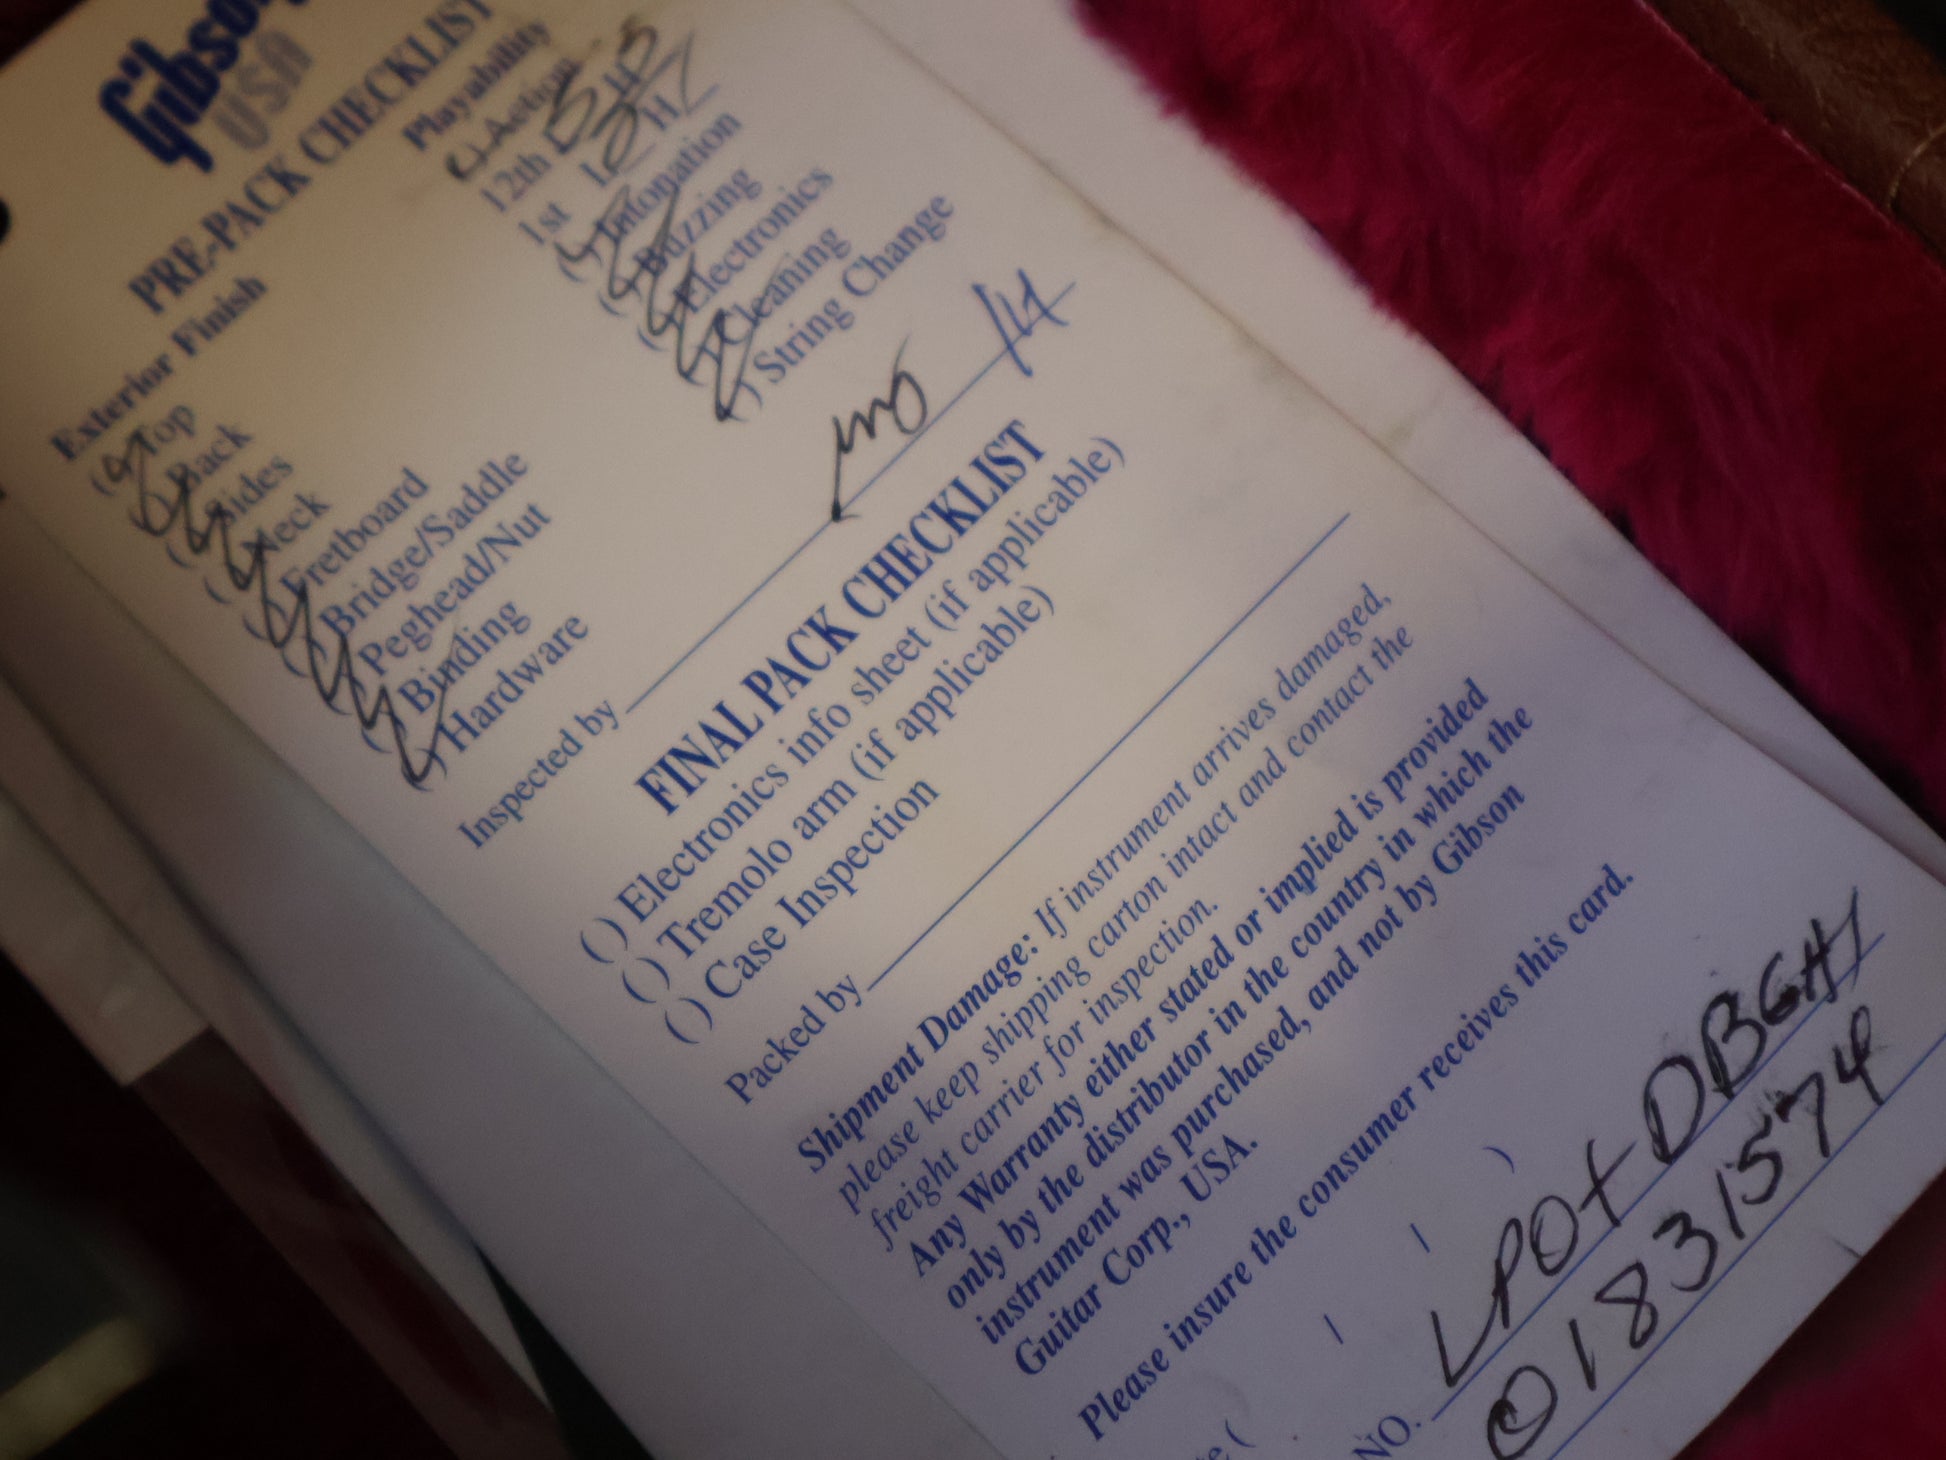 Gibson
USA
PRE-PACK CHECKLIST
Exterior Finish
Top
Back
Sides
Neck
Fretboard
Bridge/Saddle
Peghead/Nut
Binding
Hardware
Playability
Action
12th
1st
Intonation
Buzzing
Electronics
Cleaning
( ) String Change
Inspected by
FINAL PACK CHECKLIST
( ) Electronics info sheet (if applicable)
( ) Tremolo arm (if applicable)
( ) Case Inspection
Packed by
Shipment Damage: If instrument arrives damaged,
please keep shipping carton intact and contact the
freight carrier for inspection.
Any Warranty either stated or implied is provided
only by the distributor in the country in which the
instrument was purchased, and not by Gibson
Guitar Corp., USA.
Please insure the consumer receives this card.
LPOTDBGH1
NO. 01831574